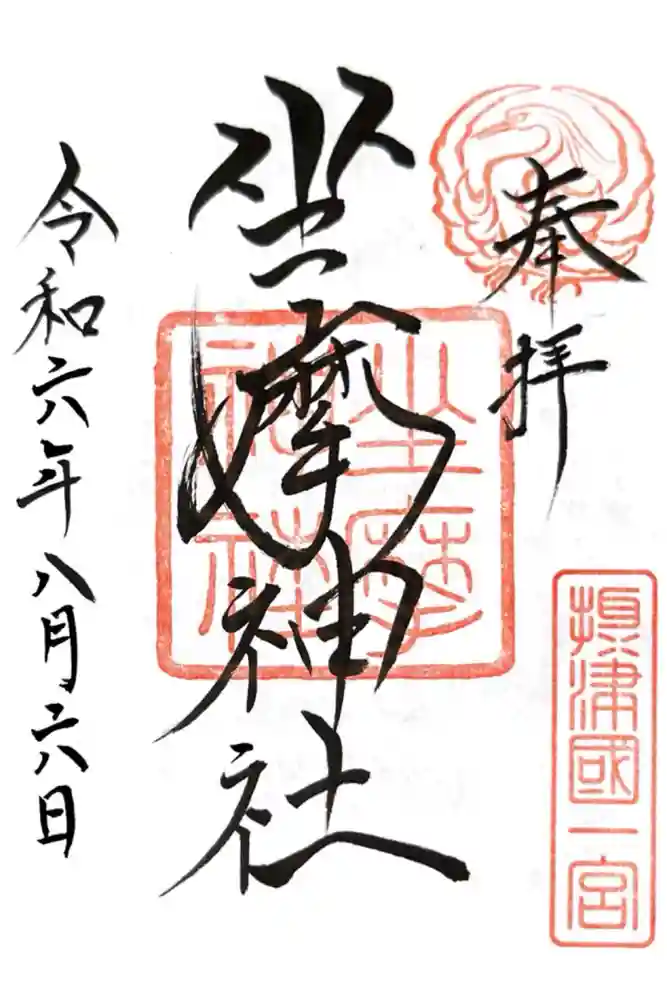 奉拝
摂津國一宮
坐摩神社
坐摩
神社
令和六年八月六日